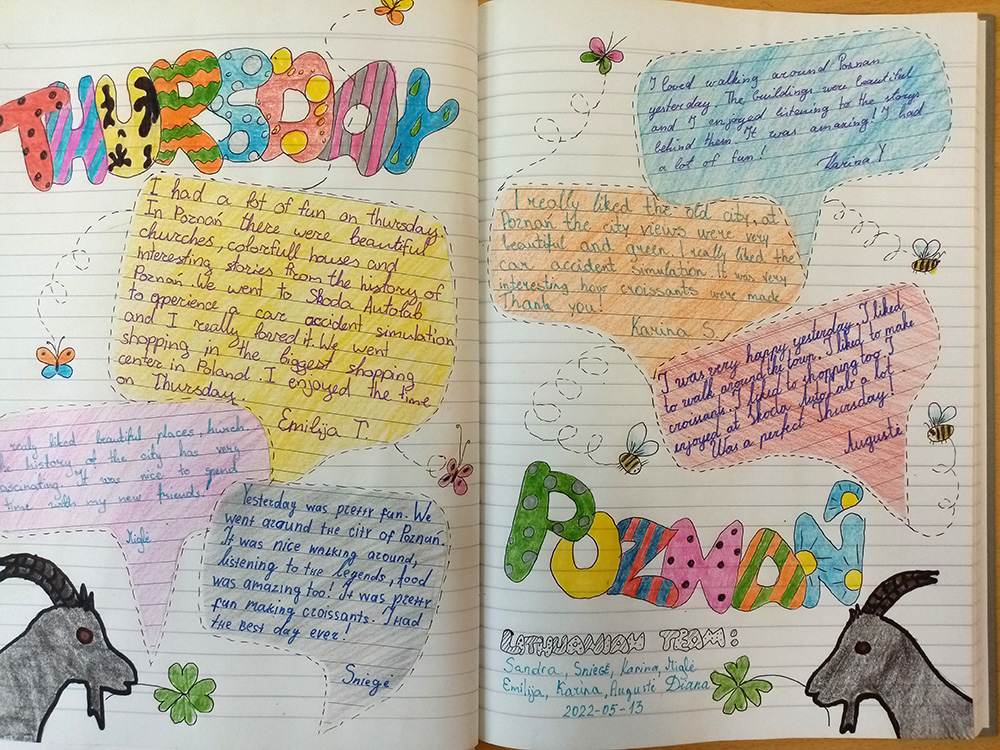 THURSDAY
I had a lot of fun on thursday.
In Poznań there were beautiful
churches, colorfull houses and
interesting stories from the history of
Poznań. We went to Skoda Autolab
to qperience a car accident simulation
and I really loved it. We went
shopping in the biggest shopping
center in Poland. I enjoyed the time
on Thursday.
Emilija T.
realy liked beautiful places, hurch.
he history of the city has very
ascinating. It was nice to spend
time with my new friends.
Miglė
Yesterday was pretty fun. We
went around the city of Poznań.
It was nice walking around,
listening to the legends, food
was amazing too! It was pretty
fun making croissants. I had
the best day ever!
Sniegė
I loved walking around Poznan
yesterday. The buildings were beautiful
and I enjoyed listening to the storys
behind them. It was amazing! I had
a lot of fun!
Karina Y
I really liked the old city, at
Poznań the city views were very
beautiful and green. I really liked the
car accident simulation. It was very
interesting how croissants were made.
Thank you!
Karina S
I was very happy yesterday. I liked
to walk around the town. I liked to make
croissants. I liked to shopping too. I
enjoyed at Skoda Auto Lab a lot.
Was a perfect Thursday!
Augustė
POZNAŃ
LITHUANIAN TEAM:
Sandra, Sniegė, Karina, Miglė
Emilija, Karina, Augustė Diana
2022-05-13